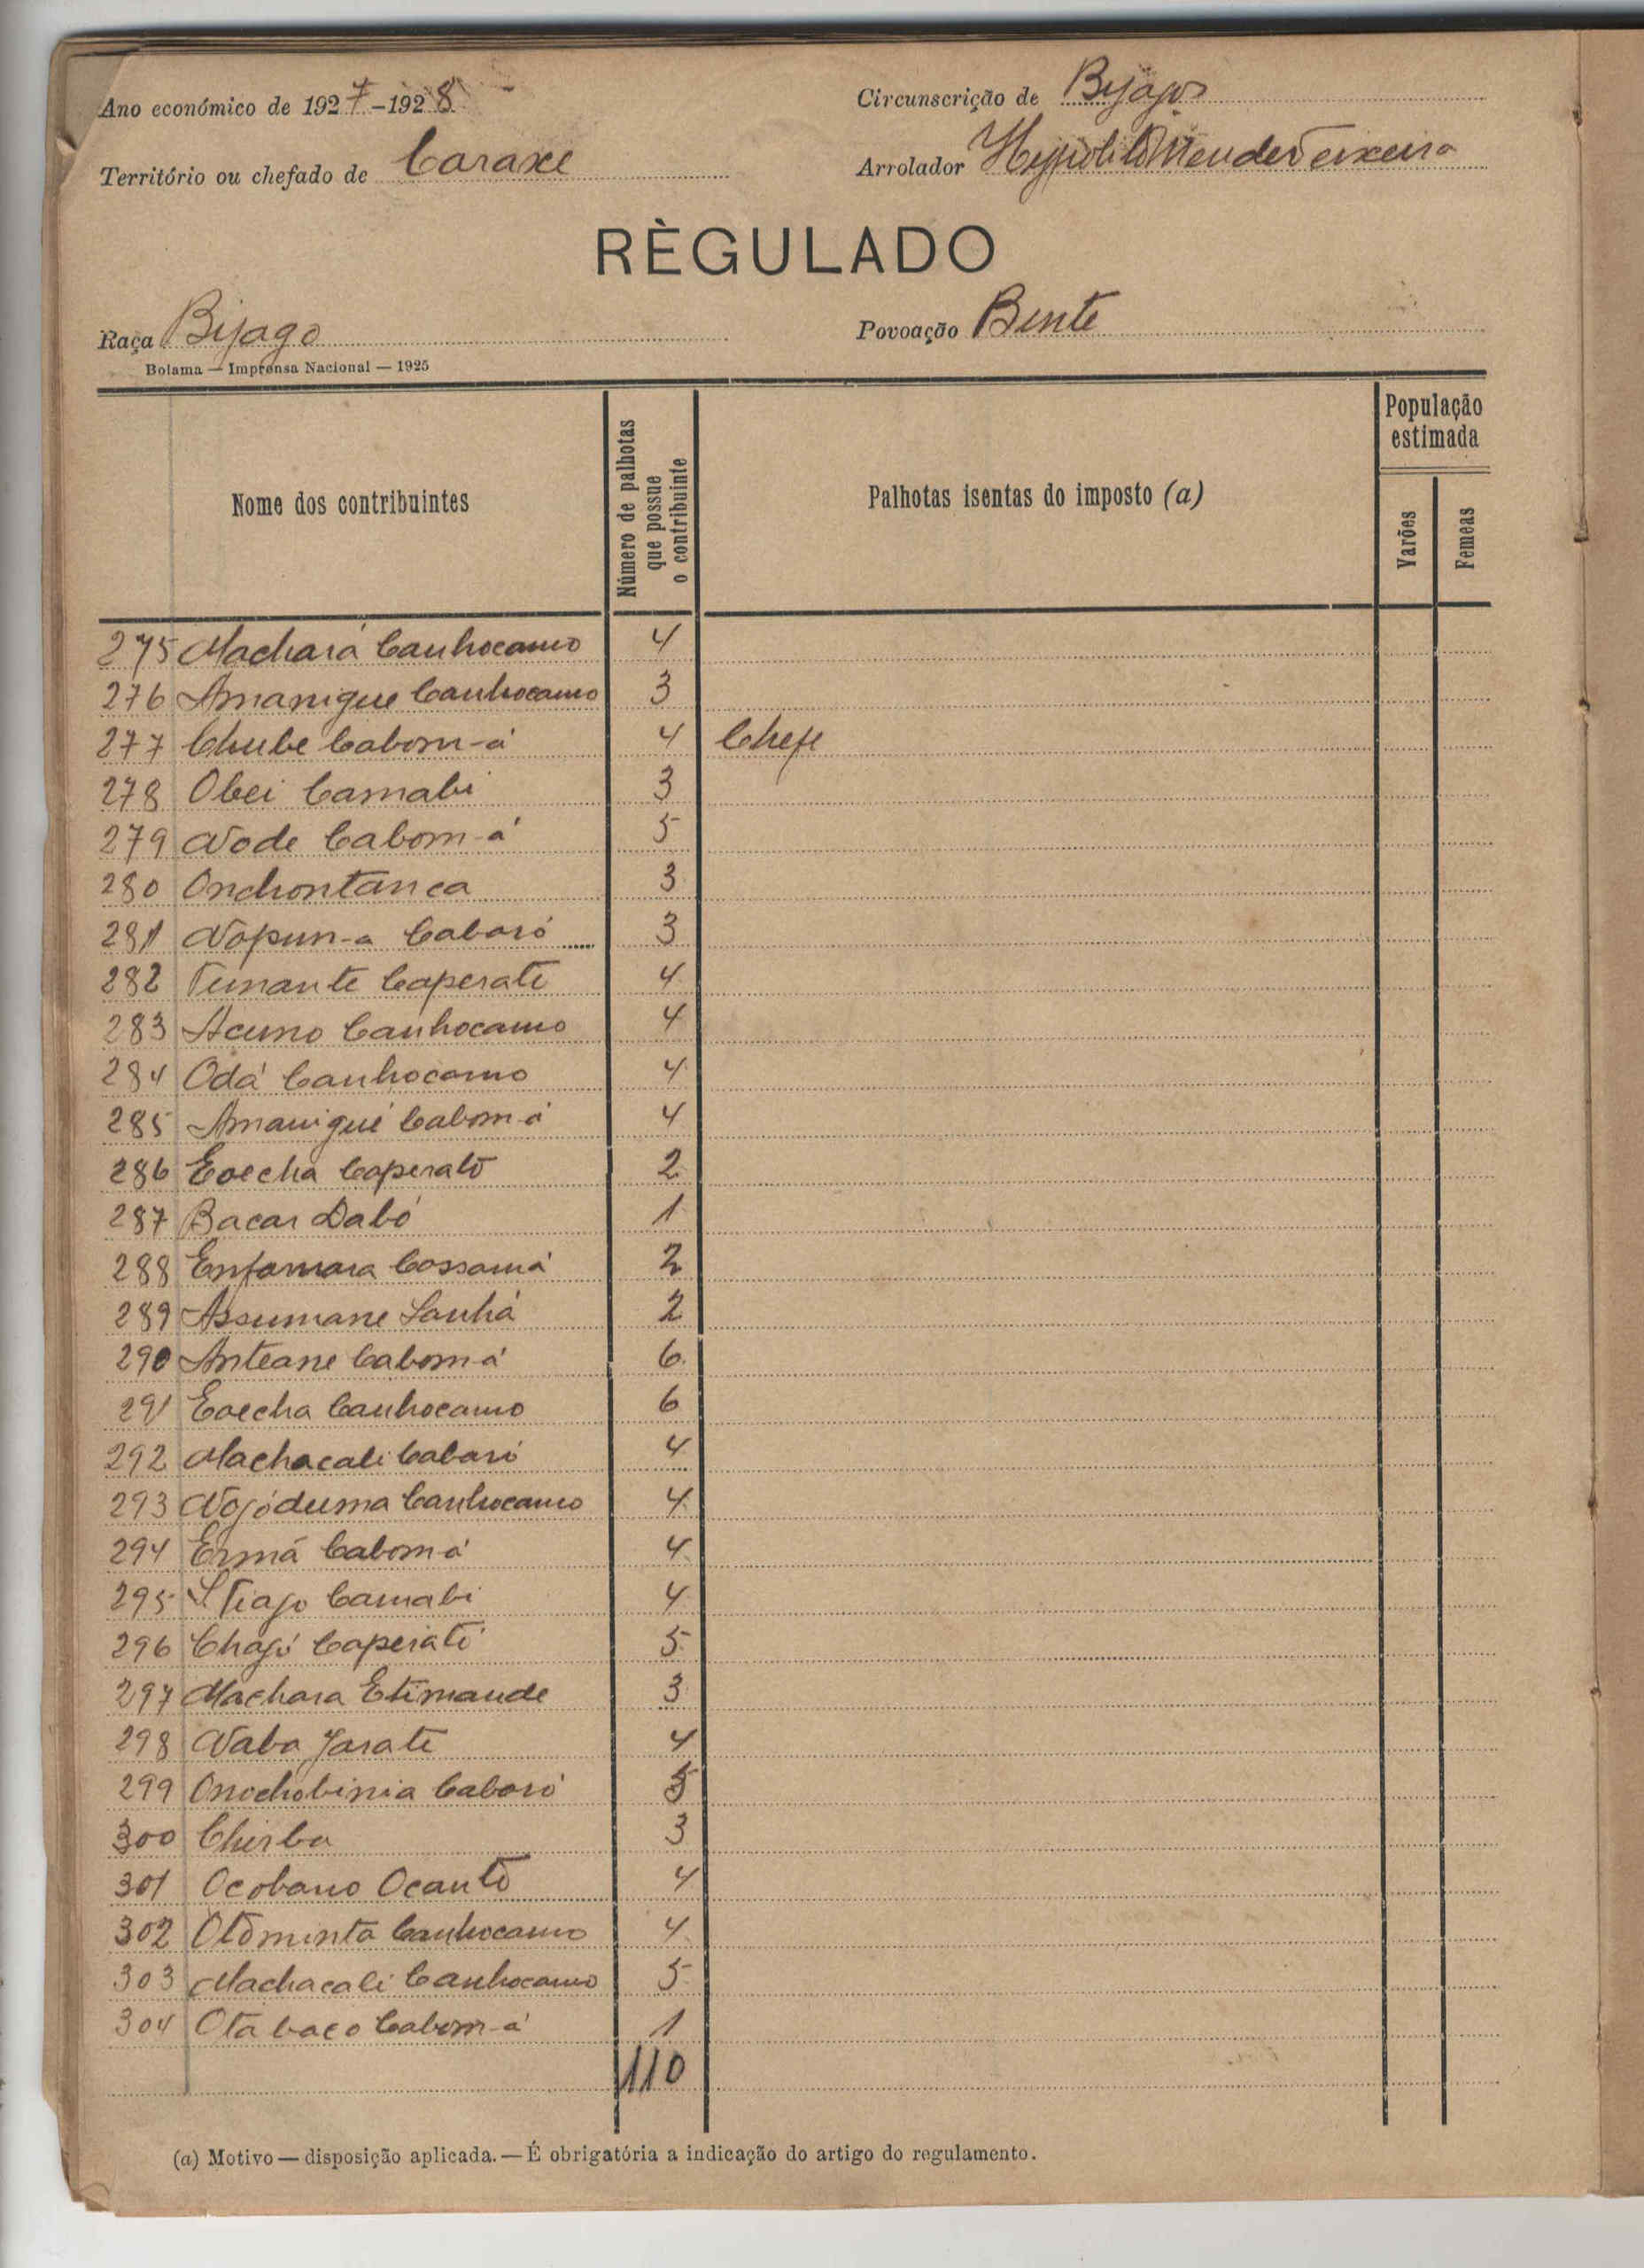 Ano económico de 1927-1928
Circunscrição de Bijagos
Território ou chefado de Caraxe
Arrolador Hypolito Mendes Teixeira
RÈGULADO
Raça Bijago
Povoação Bente
Bolama — Imprensa Nacional — 1925
Nome dos contribuintes
Número de palhotas que possue o contribuinte
Palhotas isentas do imposto (a)
População estimada
Varões
Femeas
275 Machará Canhocamo 4
276 Amanigue Canhocamo 3
277 Chube Cabom-á 4 Chefe
278 Obei Camabi 3
279 Node Cabom-á 5
280 Onchontanca 3
281 Nopun-a Cabaró 3
282 Tunante Caperate 4
283 Acuno Canhocamo 4
284 Odá Canhocamo 4
285 Amanigué Cabom-á 4
286 Eoecha Caperato 2
287 Bacar Dabó 1
288 Enfamara Cossamá 2
289 Assumane Sanhá 2
290 Anteane Cabom-á 6
291 Eoecha Canhocamo 6
292 Machacali Cabaró 4
293 Nojóduma Canhocamo 4
294 Ermá Cabom-á 4
295 Tiago Camabi 4
296 Chagó Caperaté 5
297 Machara Etimande 3
298 Naba Jarate 4
299 Onochobinia Cabaró
300 Chirba 3
301 Ocobano Ocanto 4
302 Otominta Canhocamo 4
303 Machacali Canhocamo 5
304 Otabaco Cabom-á 1
110
(a) Motivo — disposição aplicada. — É obrigatória a indicação do artigo do regulamento.